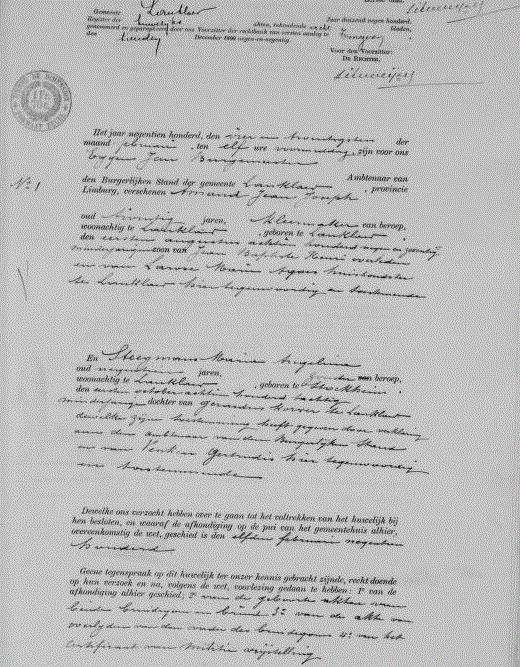 Gemeente Lanklaer
Register der huwelijks akten, inhoudende acht bladen,
genoemerd en geparapheerd door ons Voorzitter der rechtbank van eersten aanleg te Tongeren
den twintig December 1899 negen-en-negentig.
Jaar duizend negen honderd.
Voor den Voorzitter:
De Rechter,
N° 1
Het jaar negentien honderd, den vier en twintigsten der
maand februari, ten elf ure voormiddag, zijn voor ons
Eygen Jan Burgemeester
Ambtenaar van
den Burgerlijken Stand der gemeente Lanklaer, provincie
Limburg, verschenen Amand Jean Joseph
oud twintig jaren, kleermaker van beroep,
woonachtig te Lanklaer, geboren te Lanklaer,
den eersten augustus achttien honderd negen en zeventig
minderjarige zoon van Jean Baptiste Henri overleden
en van Maria Agnes huishoudster
te Lanklaer hier tegenwoordig en toestemmende
En Steegmans Maria Angelina
oud negentien jaren, zonder van beroep,
woonachtig te Lanklaer, geboren te Stockheim,
den eersten october achttien honderd tachtig
minderjarige dochter van Gerardus te Lanklaer
dewelke zijne toestemming heeft gegeven door verklaring
aan den ambtenaar van den Burgerlijken Stand
en van Gertrudis hier tegenwoordig
en toestemmende
Dewelke ons verzocht hebben over te gaan tot het voltrekken van het huwelijk bij
hen besloten, en waaraf de afkondiging op de pui van het gemeentehuis alhier,
overeenkomstig de wet, geschied is den elfden februari negentien
honderd
Geene tegenspraak op dit huwelijk ter onzer kennis gebracht zijnde, recht doende
op hun verzoek en na, volgens de wet, voorlezing gedaan te hebben: 1° van de
afkondiging alhier geschied; 2° van de geboorte akten van
beide bruidegom en bruid 3° van de akte van
overlijden van den vader des bruidegoms 4° van het
certificaat van militie vrijstelling